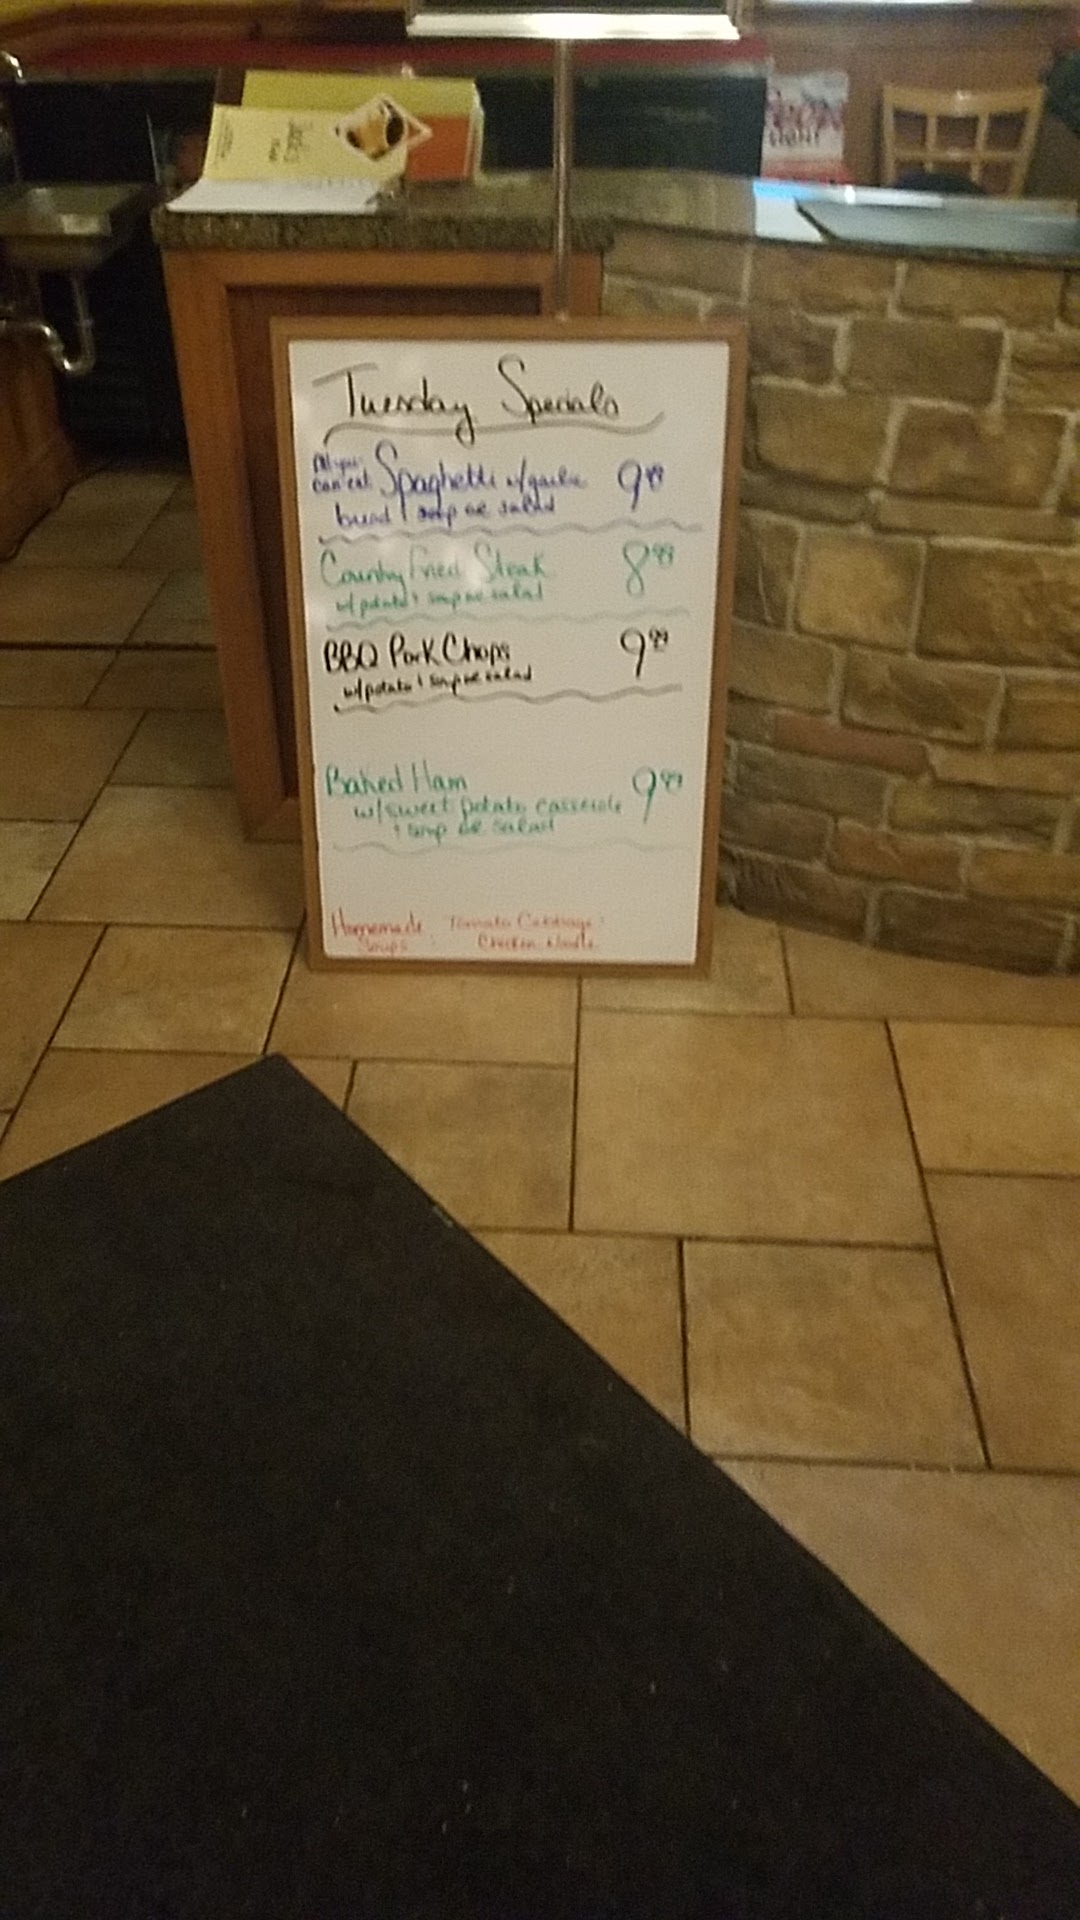 Tuesday Specials
All you can eat Spaghetti w/garlic 9.99
bread + soup or salad
Country Fried Steak 8.99
w/potato + soup or salad
BBQ Pork Chops 9.99
w/potato + soup or salad
Baked Ham 9.99
w/sweet potato casserole
+ soup or salad
Homemade Soups: Tomato Cabbage
Chicken Noodle